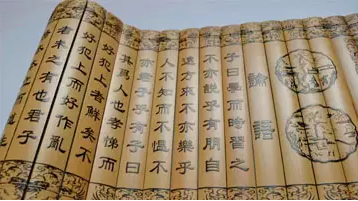 論語
子曰學而時習之
不亦說乎有朋自
遠方來不亦樂乎
人不知而不慍不
亦君子乎有子曰
其為人也孝悌而
好犯上者鮮矣不
好犯上而好作亂
者未之有也君子